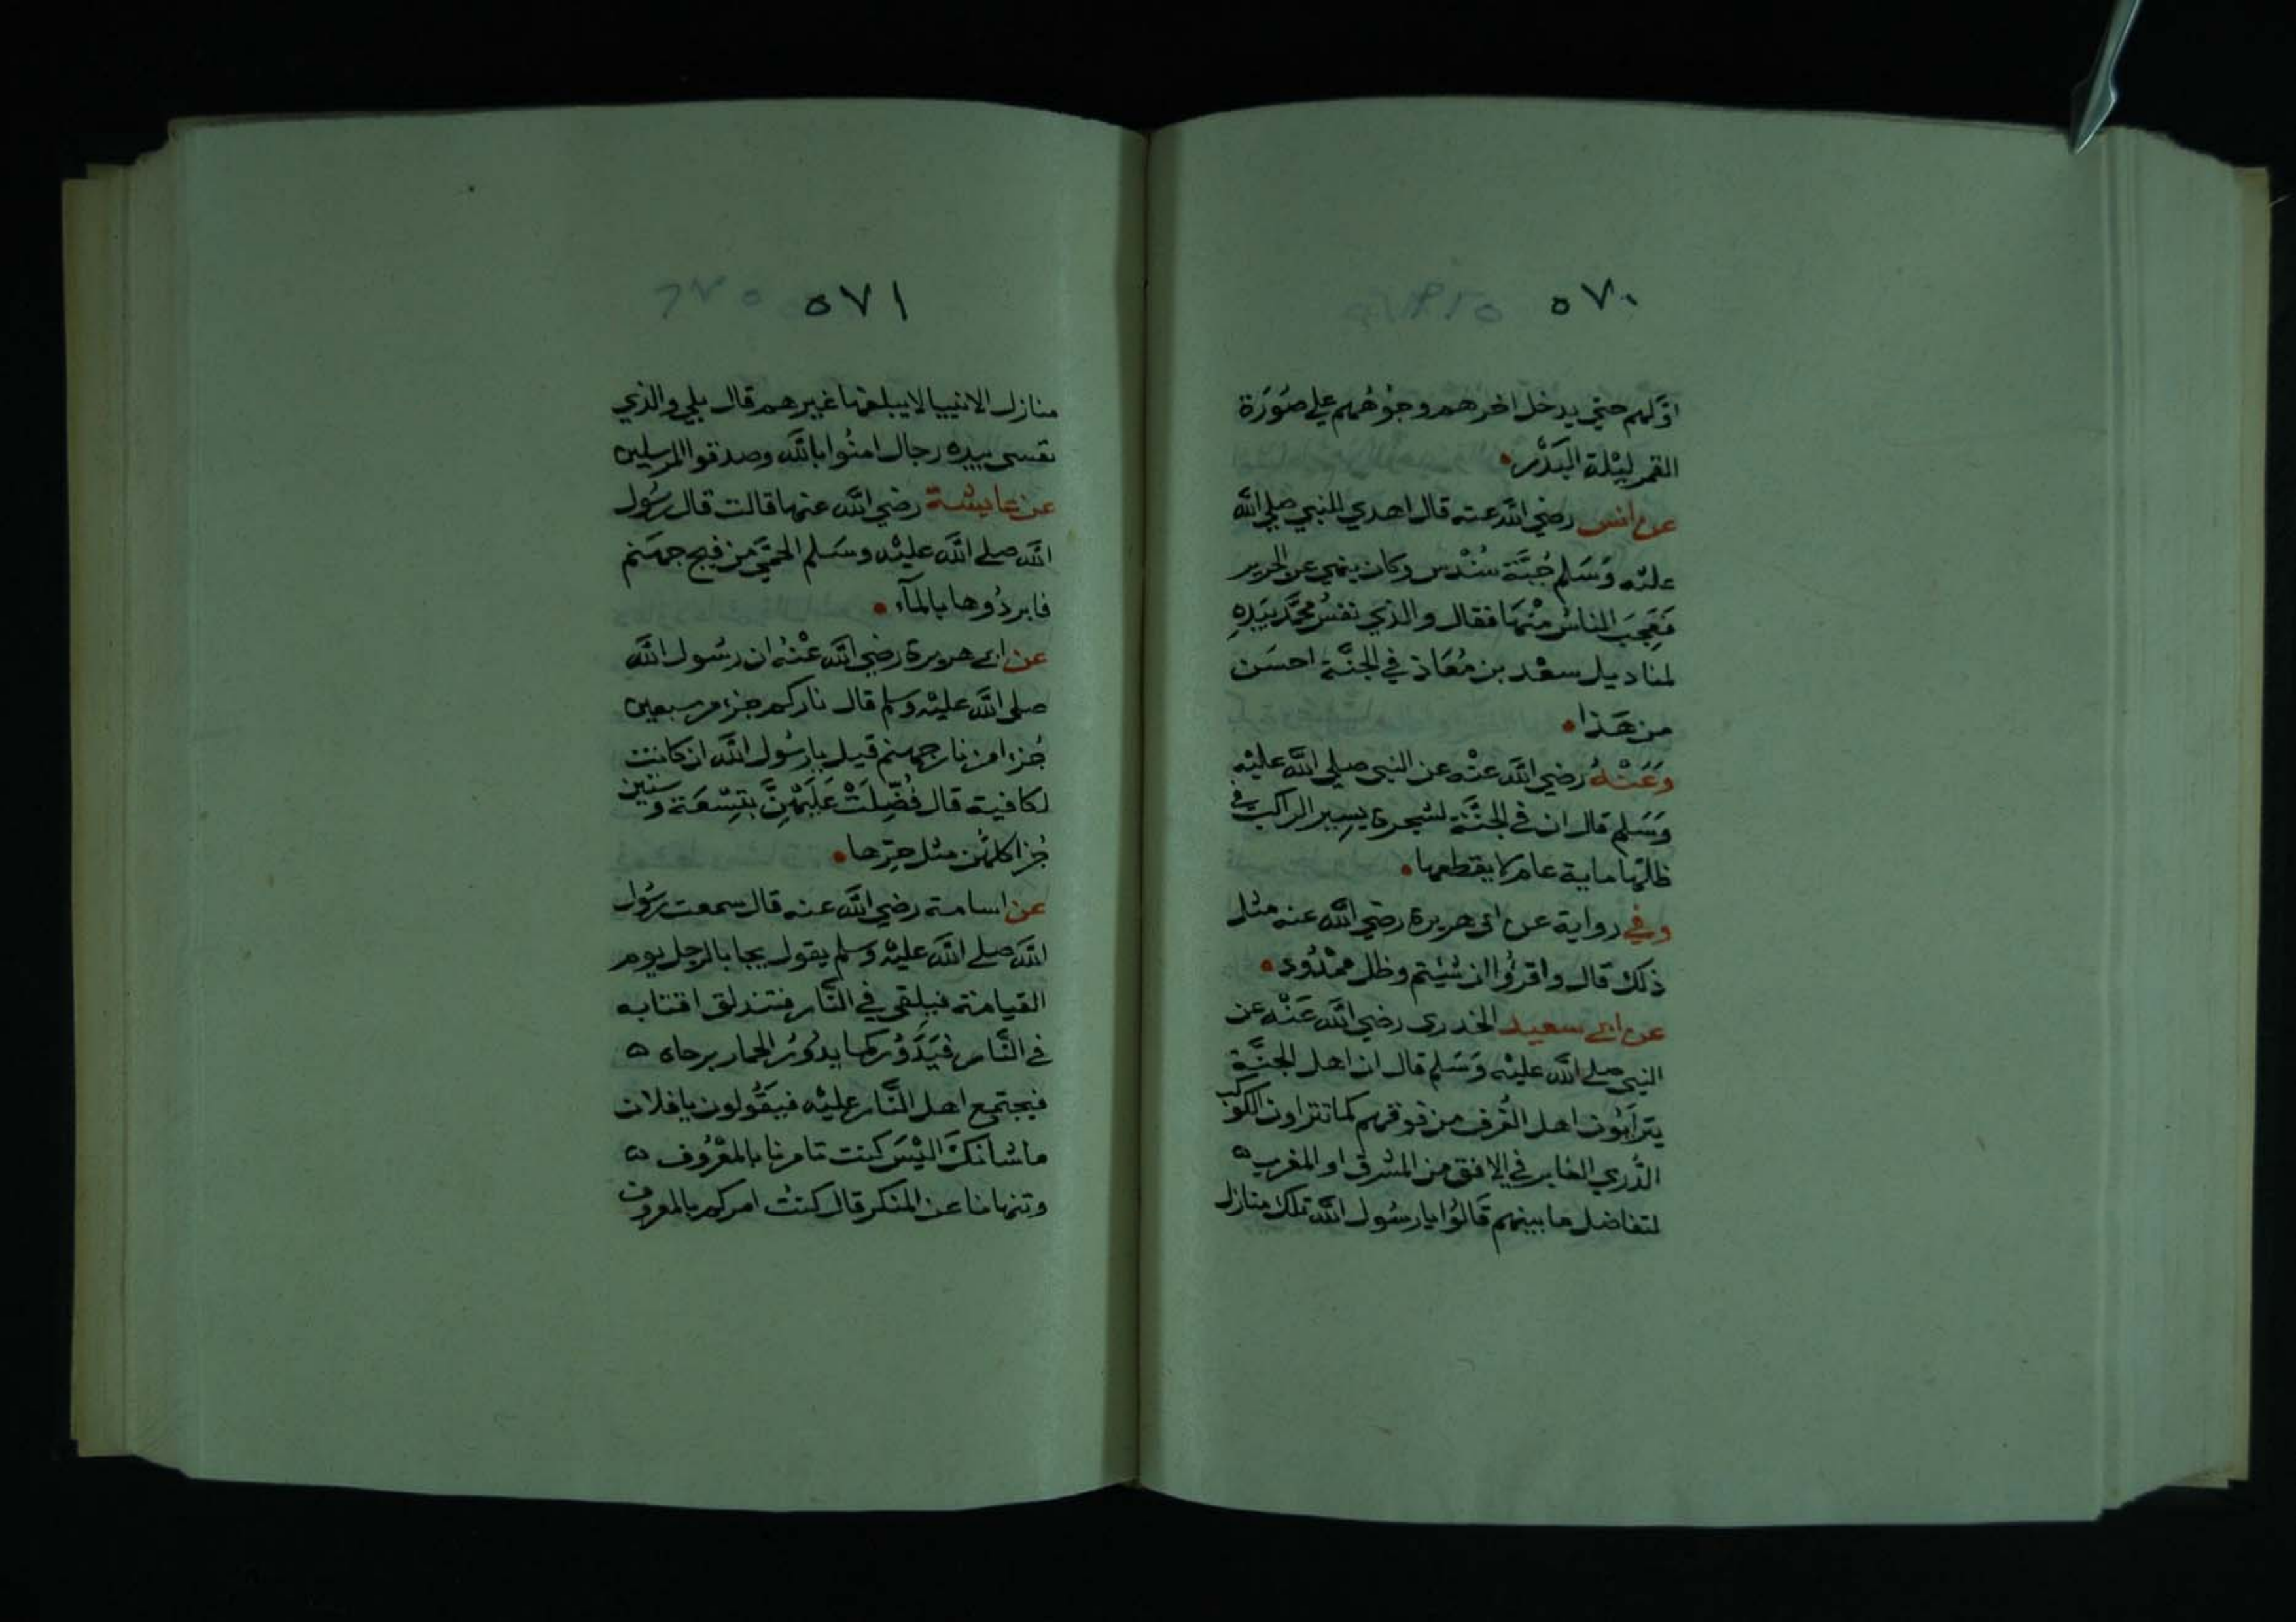 ٥٧٠
اوَّلهم حتي يدخل اخرهم وجوُههم علي صُورَة
القمر ليْلة البَدْر
عن انس رضي اللَّه عنه قال اهدي للنبي صلي اللَّه
عليْه وَسَلم جُبَّة سُنْدُس وكان ينهي عن الحرير
فعَجِبَ الناسُ منْهَا فقال والذي نفسُ محمَّد بيَدِهِ
لمناديل سعْد بن مُعَاذ في الجنَّة احسَن
من هَذا
وَعَنْهُ رضي اللَّه عنْه عن النبي صلي اللَّه عليْه
وَسَلم قال ان في الجنَّة لشجرة يسِير الراكب في
ظلها ماية عام لا يقطعها
وفي رواية عن ابي هريرة رضي اللَّه عنه مثل
ذلك قال واقرؤا ان شيْتم وظل ممْدُود
عن ابي سعيد الخدري رضي اللَّه عَنْه عن
النبي صلي اللَّه عليْه وَسَلم قال ان اهل الجنَّة
يترآيُون اهل الغُرف من فوقهم كما تتراون الكوكب
الدُّري الغابر في الافق من المشرق او المغرب ه
لتفاضل ما بينهم قالوُا يا رسُول اللَّه تلك منازل
٥٧١
منازل الانبيا لا يبلغها غيرهم قال بلي والذي
نفسي بيده رجال امنُوا باللَّه وصدقوا المرسلين
عن عايشة رضي اللَّه عنها قالت قال رسُول
اللَّه صلي اللَّه عليْه وسَلم الحمَّي من فيح جهَنم
فابردُوها بالمآء
عن ابي هريرة رضي اللَّه عنْهُ ان رسُول اللَّه
صلي اللَّه عليْه وسلم قال ناركم جزء من سبعين
جُزءا من نار جهنم قيل يا رسُول اللَّه ان كانت
لكافية قال فُضِّلَتْ عَلَيْهنَّ بتِسْعَة وَستين
جُزا كلهُن مثل حرِّها
عن اسامة رضي اللَّه عنه قال سمعت رسُول
اللَّه صلي اللَّه عليْه وسلم يقول يجا بالرجل يوم
القيامة فيلقي في النَّار فتندلق اقتابه
في النَّار فيَدَوُر كما يدُورُ الحمار برحاه ه
فيجتمع اهل النَّار عليْه فيَقُولون يا فلان
ما شانكَ اليْسَ كنت تامرنا بالمعْرُوف ه
وتنهانا عن المنكر قال كنتُ امركم بالمعروف